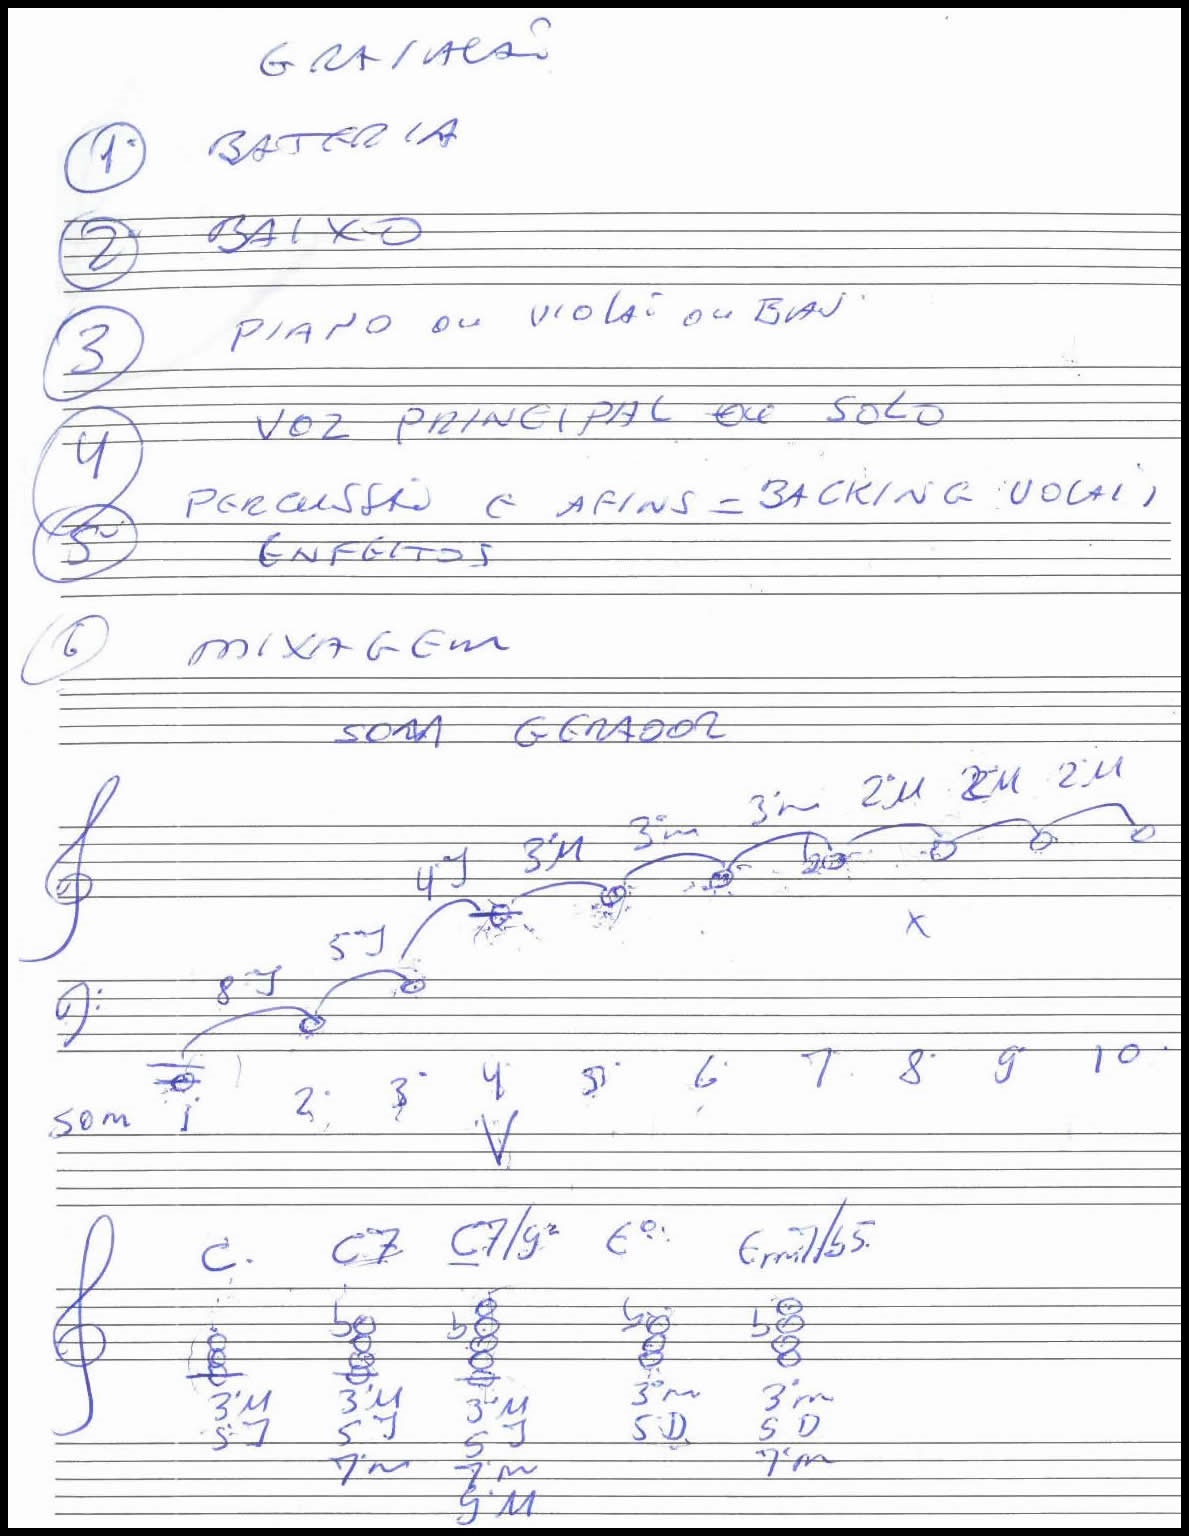 GRAVAÇÃO
1º BATERIA
2º BAIXO
3 PIANO ou VIOLÃO ou
4 VOZ PRINCIPAL ou SOLO
5º PERCUSSÃO E AFINS = BACKING VOCAL,
ENFEITOS
6 MIXAGEM
SOM GERADOR
8ªJ 5ªJ 4ªJ 3ªM 3ªm 3ªm 2ªM 2ªM 2ªM
b
X
SOM 1 2º 3º 4º 5º 6º 7º 8º 9º 10º
V
C. C7 C7/9ª Eº Em7/b5
b b b b
3ªM 3ªM 3ªM 3ªm 3ªm
5ªJ 5ªJ 5ªJ 5D 5D
7ªm 7ªm 7ªm
9ªM